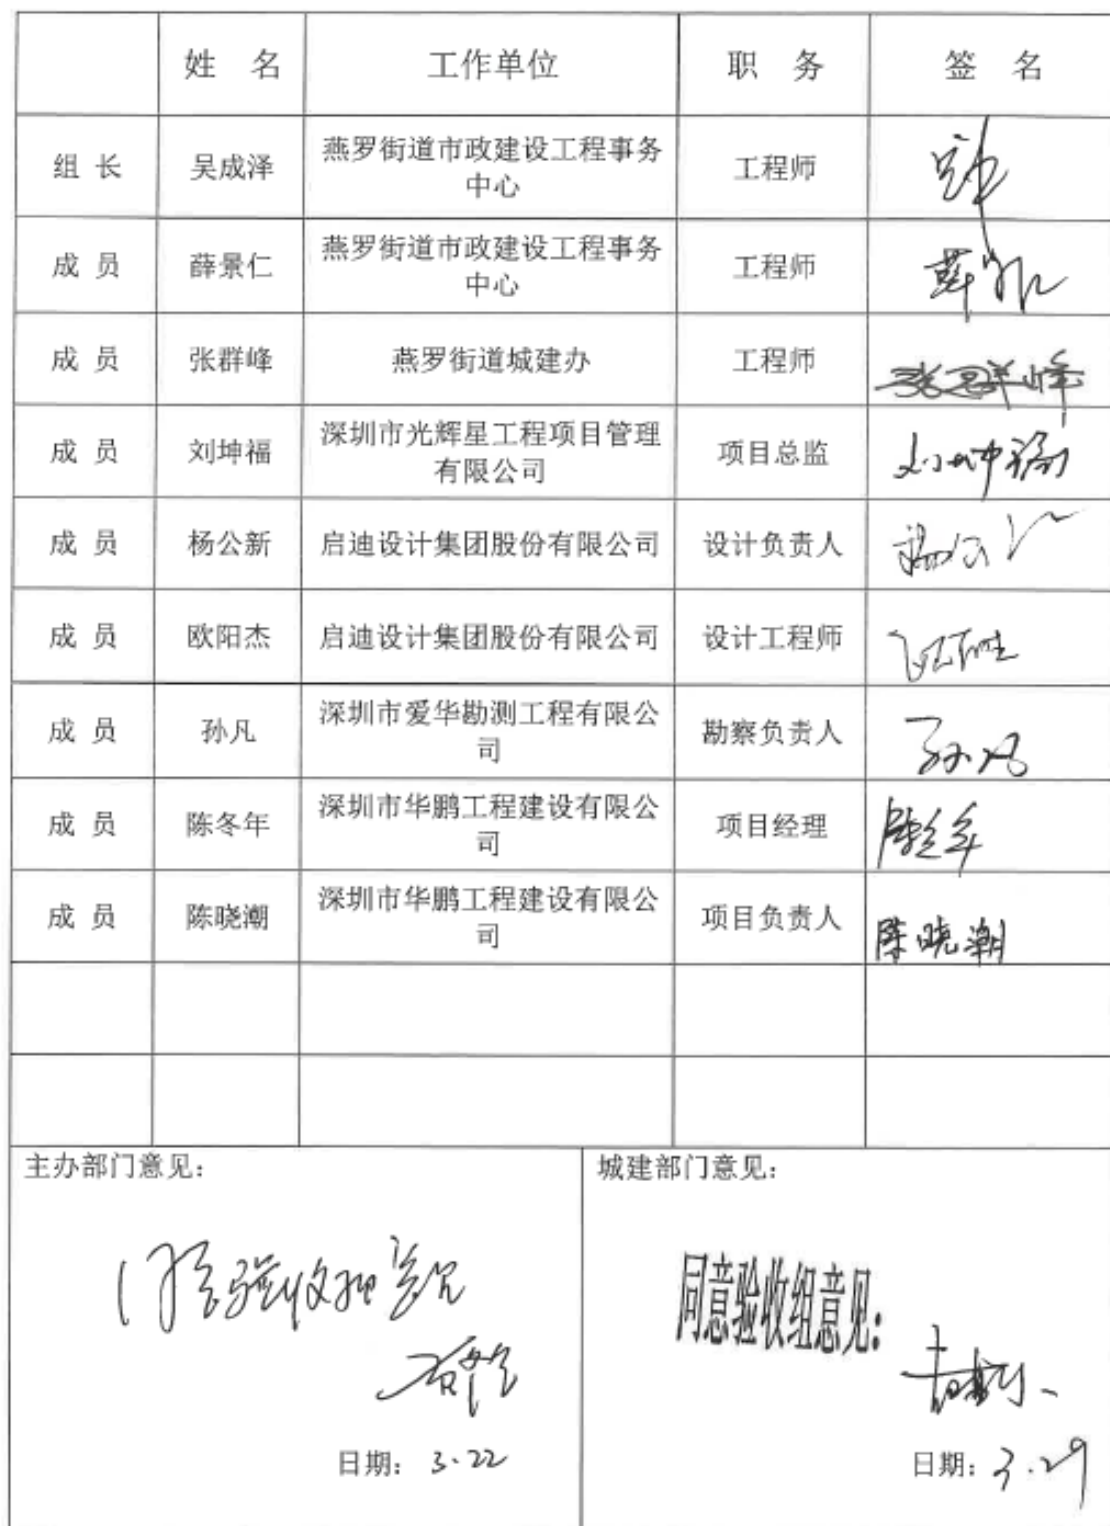 姓 名 工作单位 职 务 签 名
组 长 吴成泽 燕罗街道市政建设工程事务
中心 工程师
成 员 薛景仁 燕罗街道市政建设工程事务
中心 工程师 薛景仁
成 员 张群峰 燕罗街道城建办 工程师 张群峰
成 员 刘坤福 深圳市光辉星工程项目管理
有限公司 项目总监 刘坤福
成 员 杨公新 启迪设计集团股份有限公司 设计负责人 杨公新
成 员 欧阳杰 启迪设计集团股份有限公司 设计工程师
成 员 孙凡 深圳市爱华勘测工程有限公
司 勘察负责人 孙凡
成 员 陈冬年 深圳市华鹏工程建设有限公
司 项目经理 陈冬年
成 员 陈晓潮 深圳市华鹏工程建设有限公
司 项目负责人 陈晓潮
主办部门意见:
同意验收组意见
日期: 3.22
城建部门意见:
同意验收组意见:
日期: 3.29